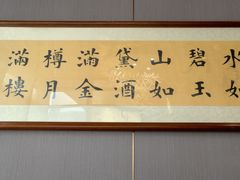 水如
碧玉
山如
黛酒
滿金
樽月
滿樓